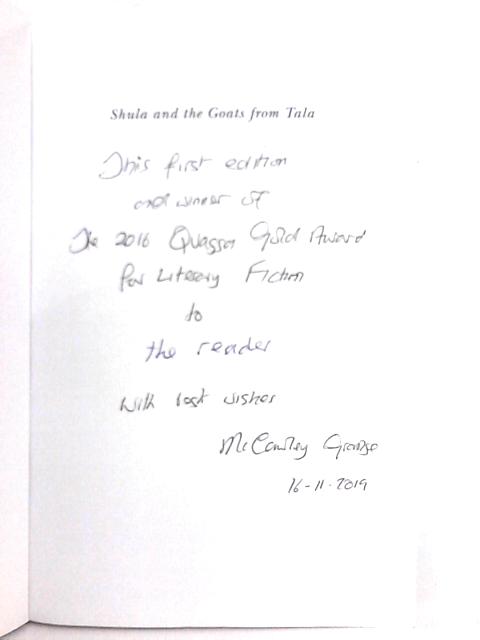 Shula and the Goats from Tala
This first edition
and winner of
The 2016 Quagga Gold Award
for Literary Fiction
to
the reader
with best wishes
McCawley Grange
16-11-2019